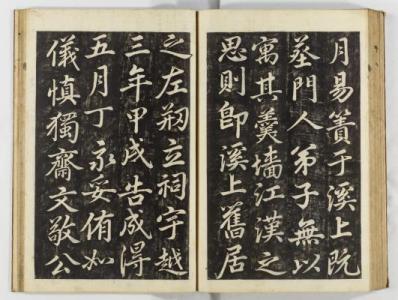 月易簀于溪上既
塟門人弟子無以
寓其羹墻江漢之
思則卽溪上舊居
之左剏立祠宇越
三年甲戌告成得
五月丁亥妥侑如
儀慎獨齋文敬公